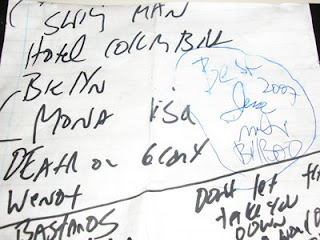 MAN
Hotel COLUMBIA
BKLYN
MONA LISA
DEATH OR GLORY
WENDY
BASTARDS
2007
BILBAO
DONT let th
take you
DOWN